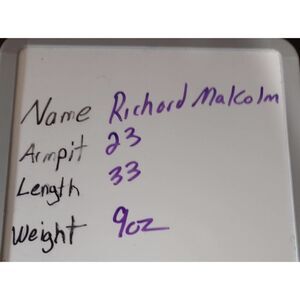 Name Richard Malcolm
Armpit 23
Length 33
Weight 9oz